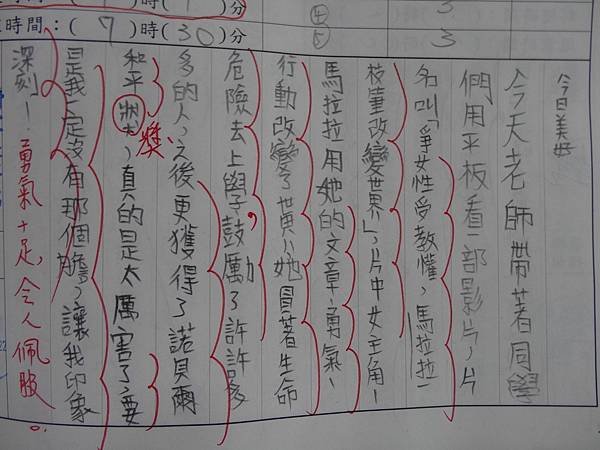 時(  )分
時間:( 9 )時( 30 )分
④ 3
⑤ 3
今日美好
今天老師帶著同學
們用平板看一部影片,片
名叫「爭女性受教權,馬拉拉
一枝筆改變世界」,片中女主角—
馬拉拉用她的文章、勇氣、
行動改變了世界,她冒著生命
危險去上學,鼓勵了許許多
多的人,之後更獲得了諾貝爾
和平獎,真的是太厲害了,要
獎
是我一定沒有那個膽,讓我印象
深刻!
勇氣十足,令人佩服。